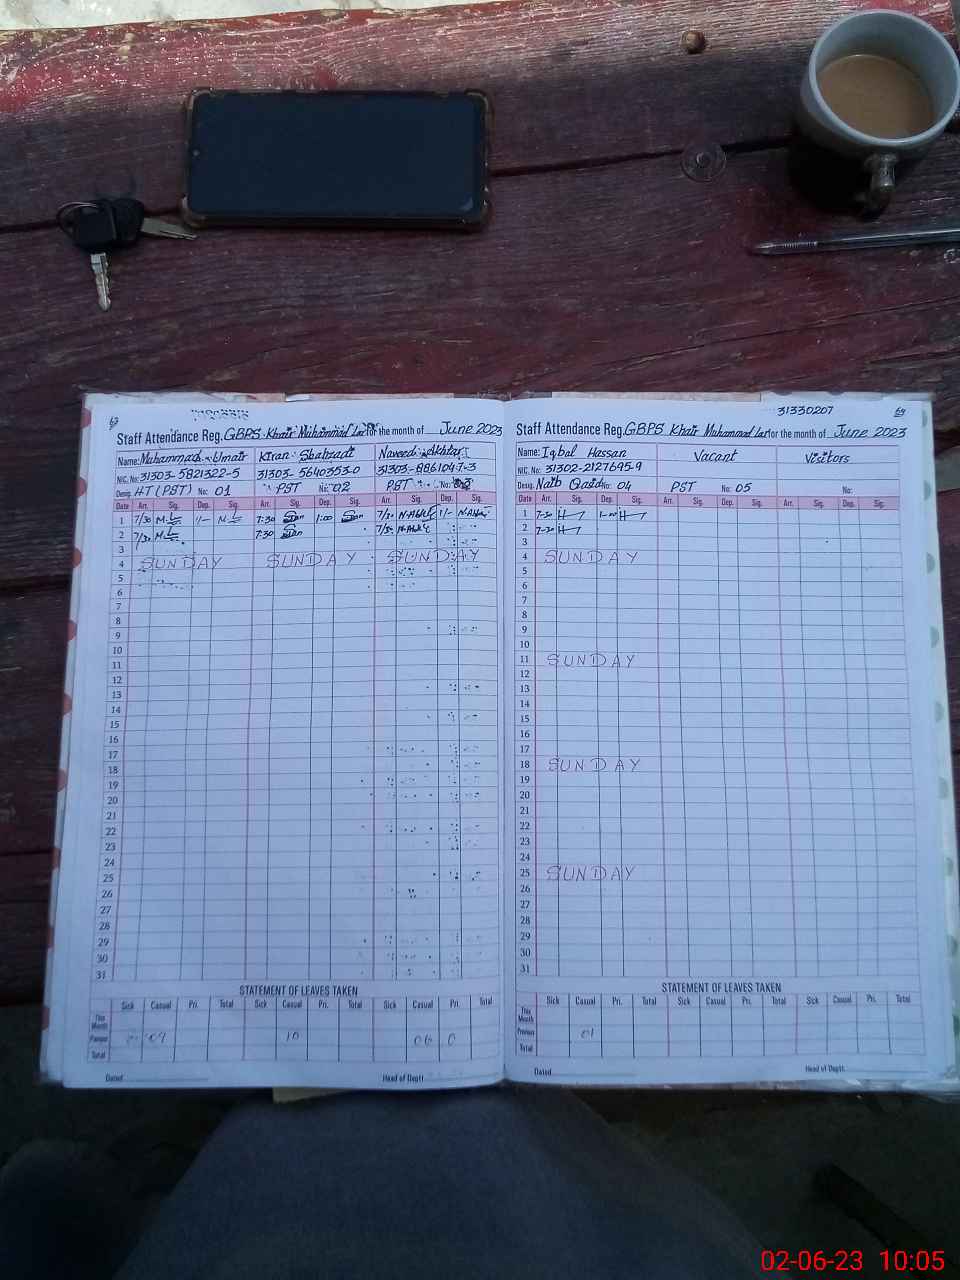 63
Staff Attendance Reg. GBPS Khair Muhammad Lar for the month of June 2023
Name: Muhammad Umair Kiran Shahzadi Naveed Akhtar
NIC. No: 31303-5821322-5 31303-5640353-0 31303-8861047-3
Desig. HT (PST) No: 01 PST No: 02 PST No:
Date Arr. Sig. Dep. Sig. Arr. Sig. Dep. Sig. Arr. Sig. Dep. Sig.
1 7/30 1/- 7:30 1:00 7/30 1/-
2 7/30 7:30 7/30
3
4 SUNDAY SUNDAY SUNDAY
5
6
7
8
9
10
11
12
13
14
15
16
17
18
19
20
21
22
23
24
25
26
27
28
29
30
31
STATEMENT OF LEAVES TAKEN
Sick Casual Pri. Total Sick Casual Pri. Total Sick Casual Pri. Total
This Month
Previous 10 06 0
Total
Dated Head of Deptt
31330207 64
Staff Attendance Reg. GBPS Khair Muhammad Lar for the month of June 2023
Name: Iqbal Hassan Vacant Visitors
NIC. No: 31302-2127695-9
Desig. Naib Qasid No: 04 PST No: 05 No:
Date Arr. Sig. Dep. Sig. Arr. Sig. Dep. Sig. Arr. Sig. Dep. Sig.
1 7-30 1-00
2 7-30
3
4 SUNDAY
5
6
7
8
9
10
11 SUNDAY
12
13
14
15
16
17
18 SUNDAY
19
20
21
22
23
24
25 SUNDAY
26
27
28
29
30
31
STATEMENT OF LEAVES TAKEN
Sick Casual Pri. Total Sick Casual Pri. Total Sick Casual Pri. Total
This Month
Previous 01
Total
Dated Head of Deptt
02-06-23 10:05